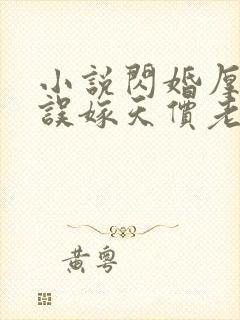 小說閃婚厚
誤嫁天價老
黃粵